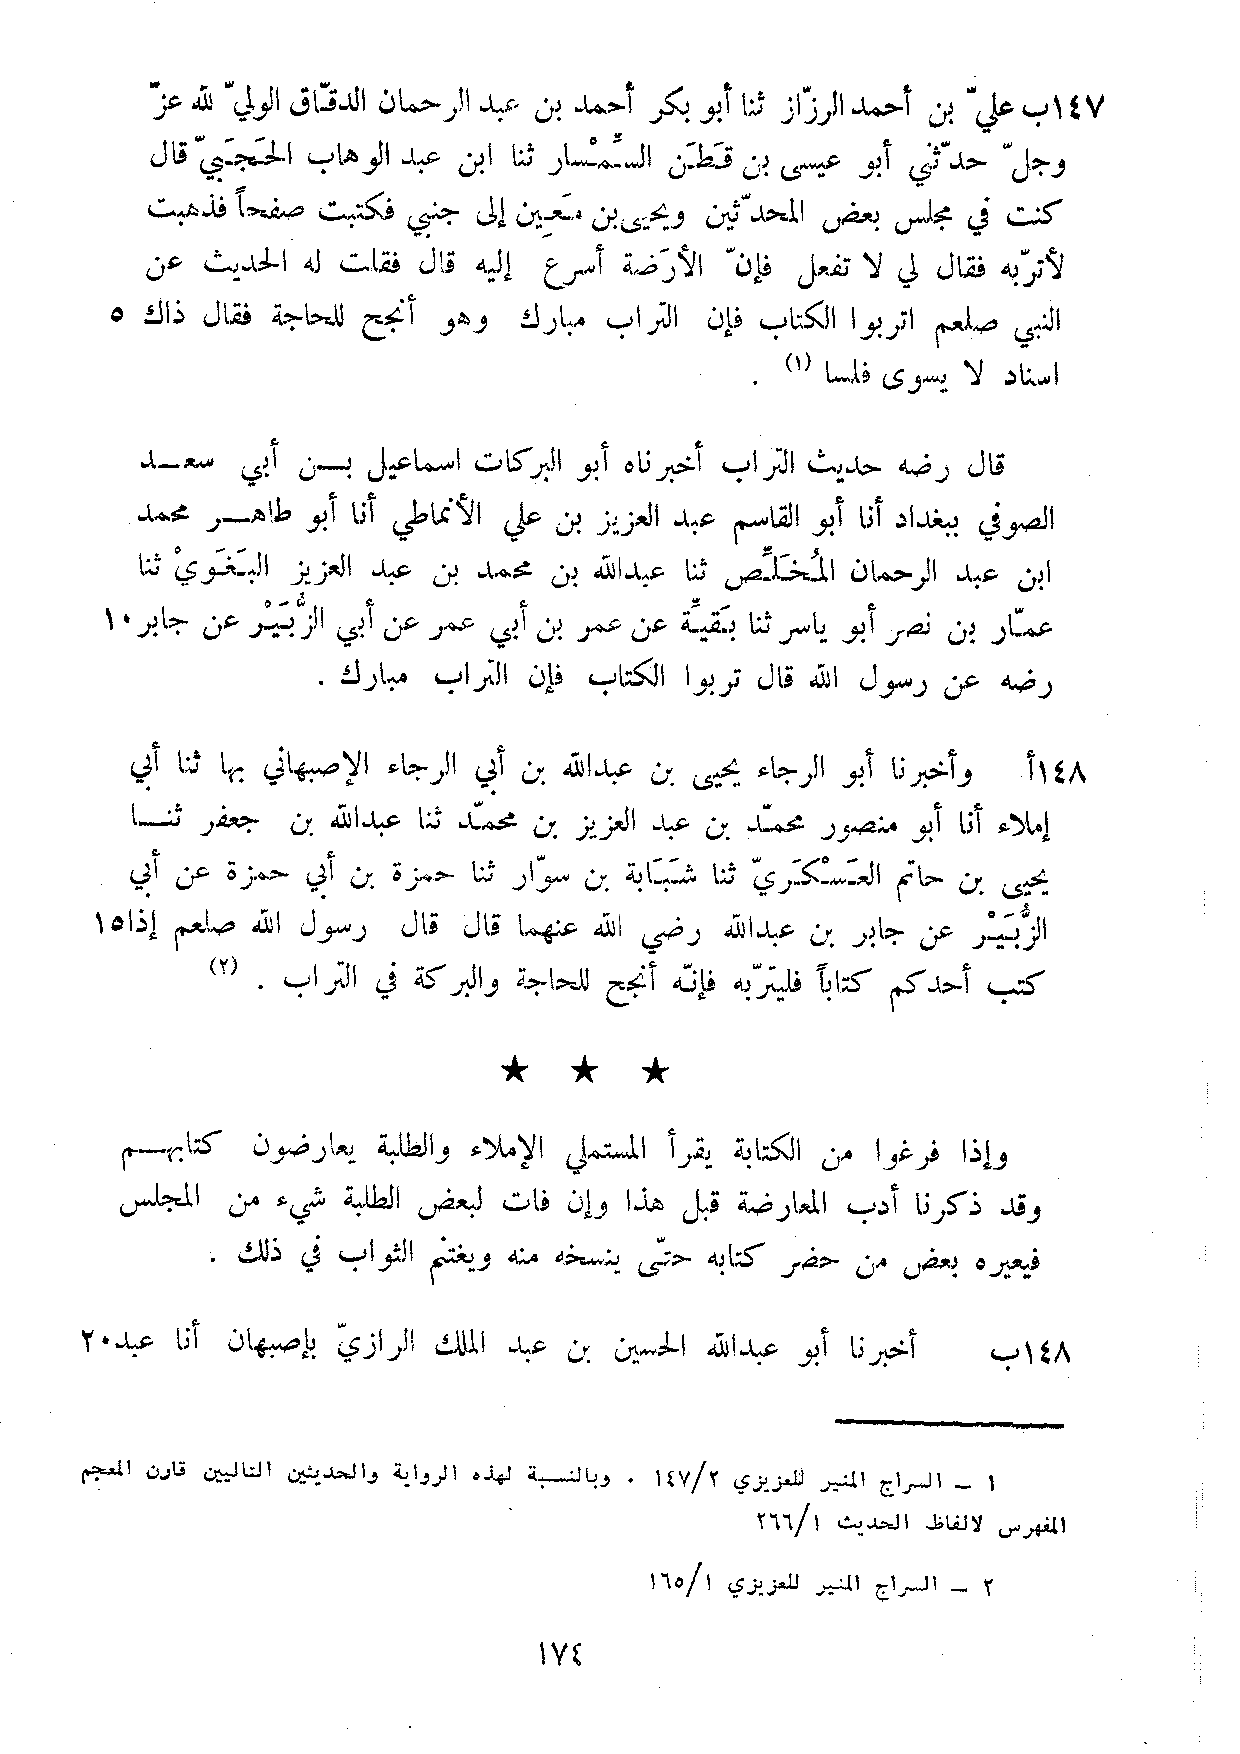 ١٤٧ب عليّ بن أحمد الرزّاز ثنا أبو بكر أحمد بن عبد الرحمان الدقّاق الوليّ لله عزّ
وجلّ حدّثني أبو عيسى بن قَطَن السِّمْسار ثنا ابن عبد الوهاب الحَجَبيّ قال
كنت في مجلس بعض المحدّثين ويحيى بن مَعِين إلى جنبي فكتبت صفحاً فذهبت
لأترّبه فقال لي لا تفعل فإنّ الأرَضة أسرع إليه قال فقلت له الحديث عن
النبي صلعم اتربوا الكتاب فإن التراب مبارك وهو أنجح للحاجة فقال ذاك ٥
اسناد لا يسوى فلسا (١) .
قال رضه حديث التراب أخبرناه أبو البركات اسماعيل بن أبي سعد
الصوفي ببغداد أنا أبو القاسم عبد العزيز بن علي الأنماطي أنا أبو طاهر محمد
ابن عبد الرحمان المُخَلِّص ثنا عبدالله بن محمد بن عبد العزيز البَغَويْ ثنا
عمّار بن نصر أبو ياسر ثنا بَقيِّة عن عمر بن أبي عمر عن أبي الزُّبَيْر عن جابر ١٠
رضه عن رسول الله قال تربوا الكتاب فإن التراب مبارك .
١٤٨أ وأخبرنا أبو الرجاء يحيى بن عبدالله بن أبي الرجاء الإصبهاني بها ثنا أبي
إملاء أنا أبو منصور محمّد بن عبد العزيز بن محمّد ثنا عبدالله بن جعفر ثنا
يحيى بن حاتم العَسْكَريّ ثنا شَبَابة بن سوّار ثنا حمزة بن أبي حمزة عن أبي
الزُّبَيْر عن جابر بن عبدالله رضي الله عنهما قال قال رسول الله صلعم إذا ١٥
كتب أحدكم كتاباً فليترّبه فإنّه أنجح للحاجة والبركة في التراب . (٢)
★ ★ ★
وإذا فرغوا من الكتابة يقرأ المستملي الإملاء والطلبة يعارضون كتابهم
وقد ذكرنا أدب المعارضة قبل هذا وإن فات لبعض الطلبة شيء من المجلس
فيعيره بعض من حضر كتابه حتّى ينسخه منه ويغتنم الثواب في ذلك .
١٤٨ب أخبرنا أبو عبدالله الحسين بن عبد الملك الرازيّ بإصبهان أنا عبد ٢٠
١ – السراج المنير للعزيزي ١٤٧/٢ . وبالنسبة لهذه الرواية والحديثين التاليين قارن المعجم
المفهرس لالفاظ الحديث ٢٦٦/١
٢ – السراج المنير للعزيزي ١٦٥/١
١٧٤